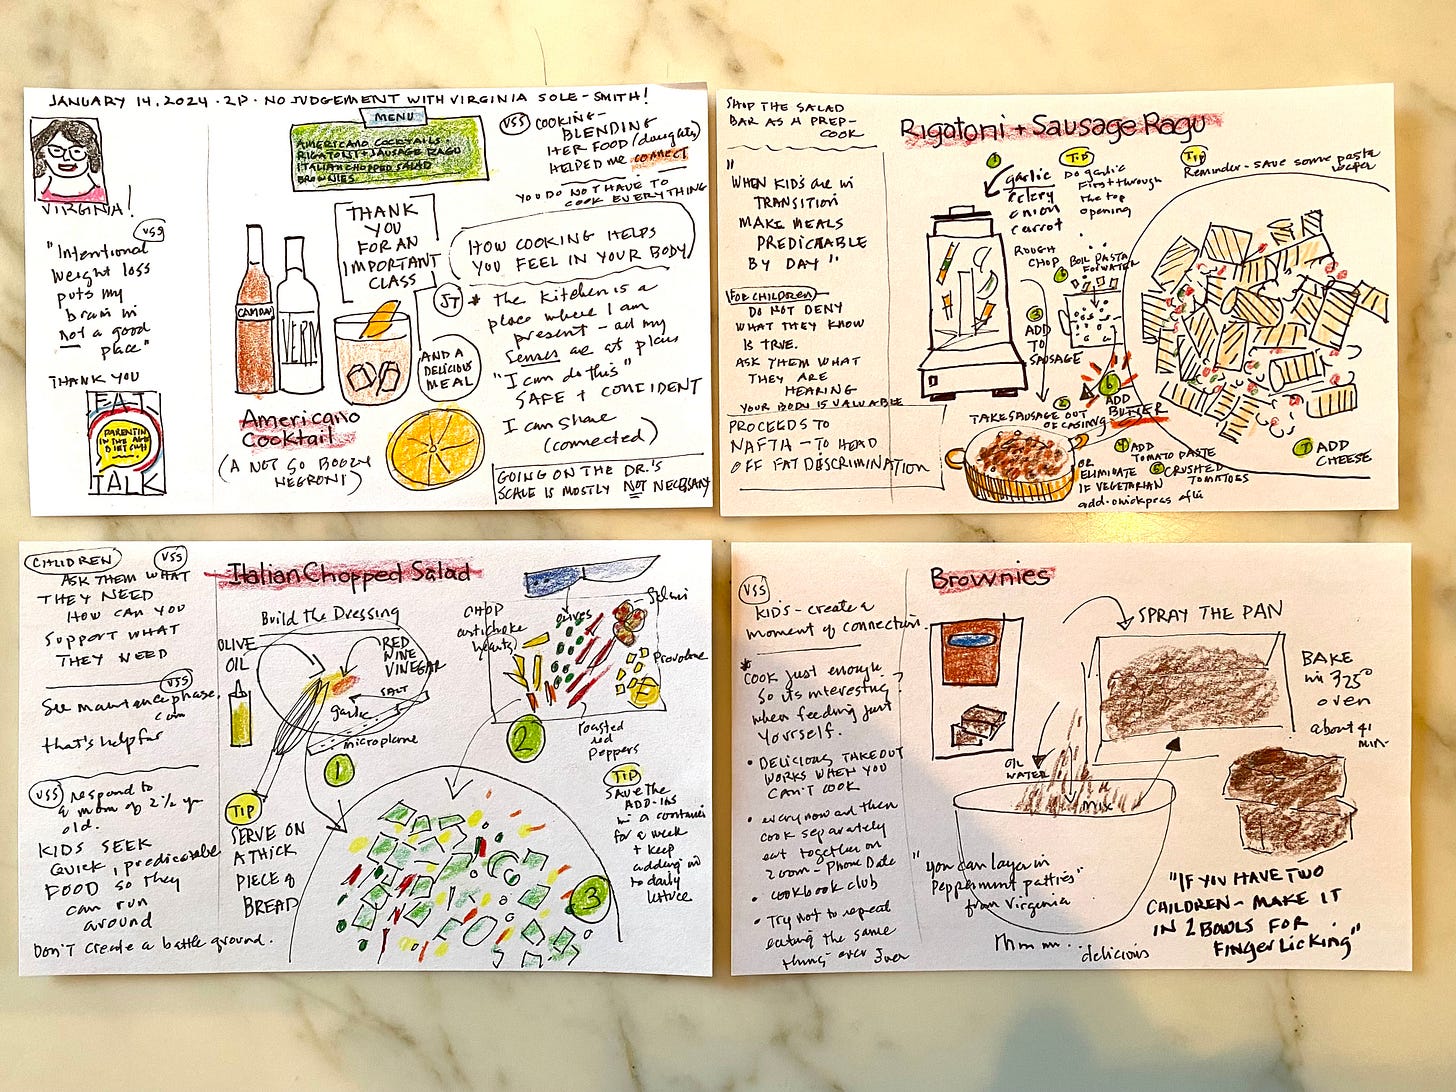 JANUARY 14, 2024 · 2P · NO JUDGEMENT WITH VIRGINIA SOLE-SMITH!
VIRGINIA!
VSS
"Intentional
weight loss
puts my
brain in
not a good
place"
THANK YOU
FAT
PARENTIN
IN THE AGE
DIET CUH
TALK
MENU
AMERICANO COCKTAILS
RIGATONI + SAUSAGE RAGU
ITALIAN CHOPPED SALAD
BROWNIES
THANK
YOU
FOR AN
IMPORTANT
CLASS
AND A
DELICIOUS
MEAL
CAMPARI
VERM
Americano
Cocktail
(A NOT SO BOOZY
NEGRONI)
VSS COOKING-
BLENDING
HER FOOD (daughter)
HELPED me connect
YOU DO NOT HAVE TO
COOK EVERYTHING
HOW COOKING HELPS
YOU FEEL IN YOUR BODY
JT * The kitchen is a
place where I am
present - all my
senses are at play
"I can do this"
SAFE + CONFIDENT
I can share
(connected)
GOING ON THE DR.'S
SCALE IS MOSTLY NOT NECESSARY
SHOP THE SALAD
BAR AS A PREP-
COOK
"WHEN KIDS are in
TRANSITION
MAKE MEALS
PREDICTABLE
BY DAY"
FOR CHILDREN
DO NOT DENY
WHAT THEY KNOW
IS TRUE.
ASK THEM WHAT
THEY ARE
HEARING
YOUR BODY IS VALUABLE
PROCEEDS TO
NAFTA - TO HEAD
OFF FAT DISCRIMINATION
Rigatoni + Sausage Ragu
1
garlic
celery
onion
carrot
ROUGH
CHOP
TIP
Do garlic
First through
the top
opening
TIP
Reminder - save some pasta
water
BOIL PASTA
WATER
3 ADD
TO
SAUSAGE
6
ADD
BUTTER
2
TAKE SAUSAGE OUT
OF CASING
OR
ELIMINATE
IF VEGETARIAN
add-chickpeas
4 ADD
TOMATO PASTE
5 CRUSHED
TOMATOES
7 ADD
CHEESE
CHILDREN VSS
ASK THEM WHAT
THEY NEED
HOW CAN YOU
SUPPORT WHAT
THEY NEED
VSS
See maintenancephase.
com
that's helpful
VSS respond to
a mom of 2½ yr
old.
KIDS SEEK
QUICK, predictable
FOOD so they
can run
around
DON'T create a battle ground.
Italian Chopped Salad
Build the Dressing
OLIVE
OIL
RED
WINE
VINEGAR
SALT
garlic
microplane
1
TIP
SERVE ON
A THICK
PIECE of
BREAD
CHOP
artichoke
hearts
olives
Salami
Provolone
roasted
red
peppers
2
TIP
SAVE the
ADD-INS
in a container
for a week
+ keep
adding in
to daily
lettuce
3
VSS
KIDS - create a
moment of connection.
* Cook just enough
so its interesting
when feeding just
yourself.
• DELICIOUS TAKEOUT
WORKS WHEN YOU
CAN'T COOK
• every now and then
cook separately
eat together on
Zoom - Phone Date
• cookbook club
• Try not to repeat
eating the same
thing over + over
Brownies
SPRAY THE PAN
OIL
WATER
mix
BAKE
in 325°
oven
about 41
min
"you can layer in
Peppermint patties"
from Virginia
Mmmm... delicious
"IF YOU HAVE TWO
CHILDREN - MAKE IT
IN 2 BOWLS FOR
FINGER LICKING"